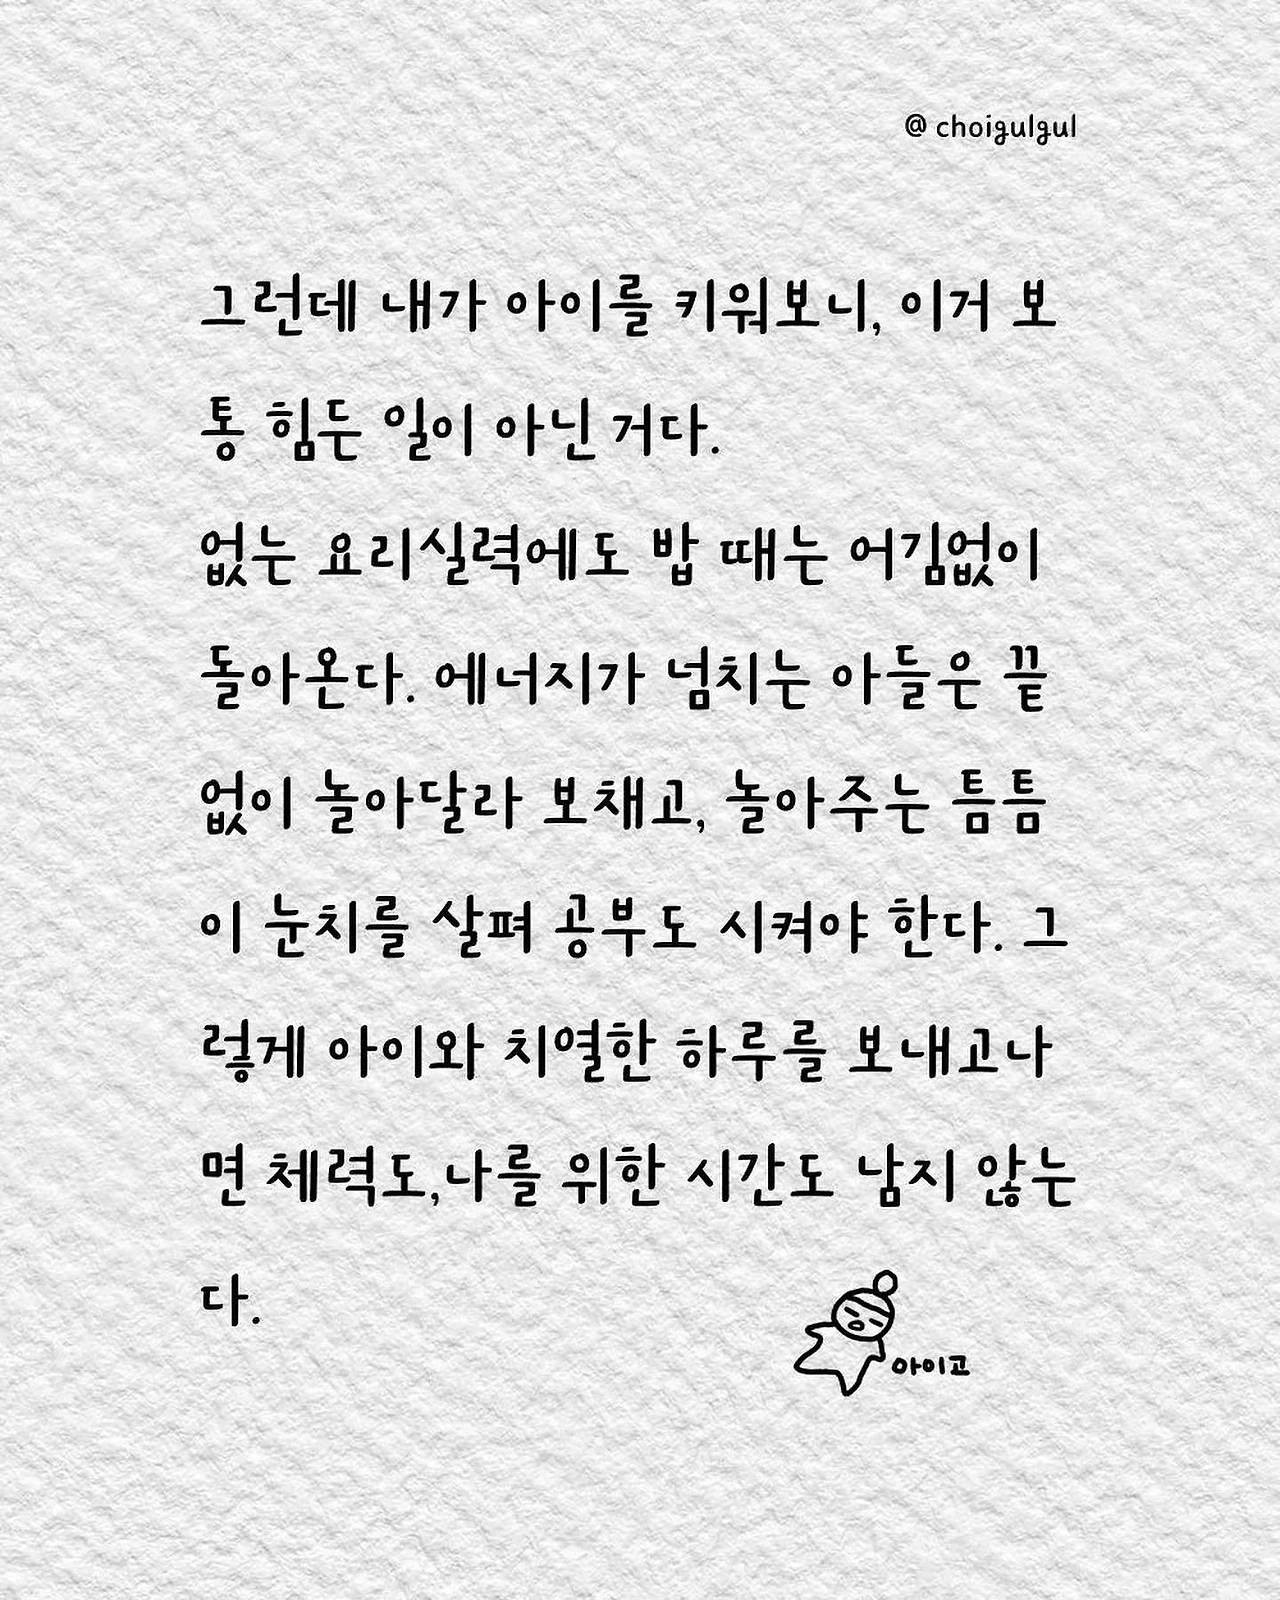 @ choigulgul
그런데 내가 아이를 키워보니, 이거 보
통 힘든 일이 아닌 거다.
없는 요리실력에도 밥 때는 어김없이
돌아온다. 에너지가 넘치는 아들은 끝
없이 놀아달라 보채고, 놀아주는 틈틈
이 눈치를 살펴 공부도 시켜야 한다. 그
렇게 아이와 치열한 하루를 보내고나
면 체력도,나를 위한 시간도 남지 않는
다.
아이고